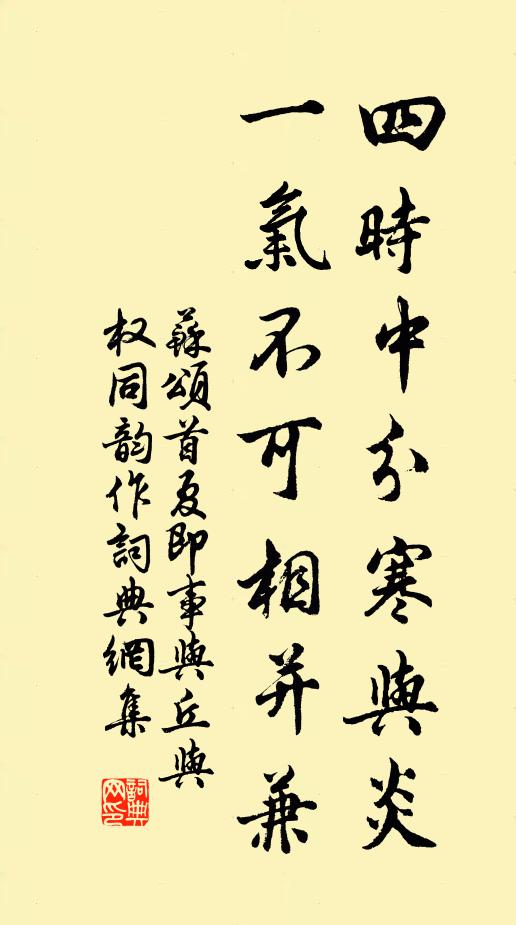 四時中分寒與炎
一氣不可相并兼
蘇頌首夏即事與丘與
权同韵作詞典網集
詞典网印